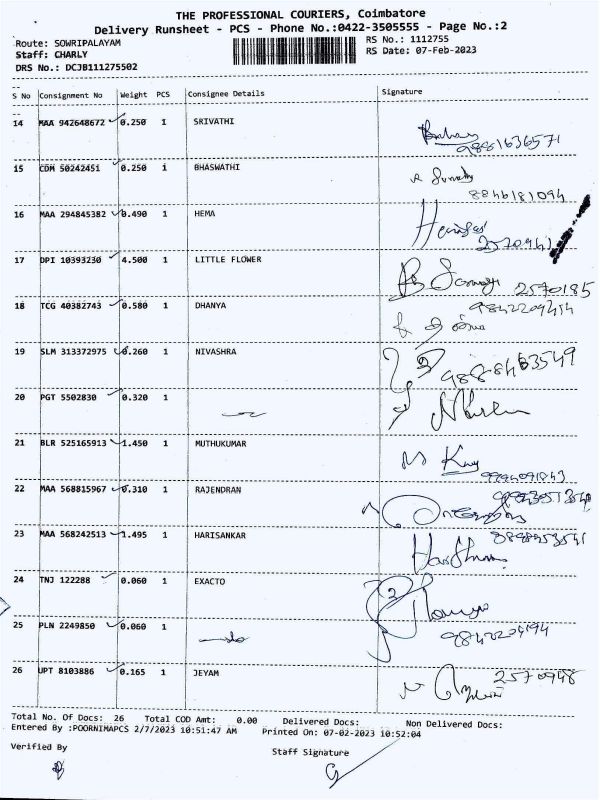 THE PROFESSIONAL COURIERS, Coimbatore
Delivery Runsheet - PCS - Phone No.:0422-3505555 - Page No.:2
Route: SOWRIPALAYAM RS No.: 1112755
Staff: CHARLY RS Date: 07-Feb-2023
DRS No.: DCJB111275502
S No Consignment No Weight PCS Consignee Details Signature
14 MAA 942648672 0.250 1 SRIVATHI
9881636571
15 CDM 50242451 0.250 1 BHASWATHI
8846181094
16 MAA 294845382 0.490 1 HEMA
17 DPI 10393230 4.500 1 LITTLE FLOWER
2570185
18 TCG 40382743 0.580 1 DHANYA
9842209454
19 SLM 313372975 0.260 1 NIVASHRA
20 PGT 5502830 0.320 1
21 BLR 525165913 1.450 1 MUTHUKUMAR
22 MAA 568815967 0.310 1 RAJENDRAN
23 MAA 568242513 1.495 1 HARISANKAR
24 TNJ 122288 0.060 1 EXACTO
25 PLN 2249850 0.060 1
26 UPT 8103886 0.165 1 JEYAM
2570948
Total No. Of Docs: 26 Total COD Amt: 0.00 Delivered Docs: Non Delivered Docs:
Entered By :POORNIMAPCS 2/7/2023 10:51:47 AM Printed On: 07-02-2023 10:52:04
Verified By Staff Signature